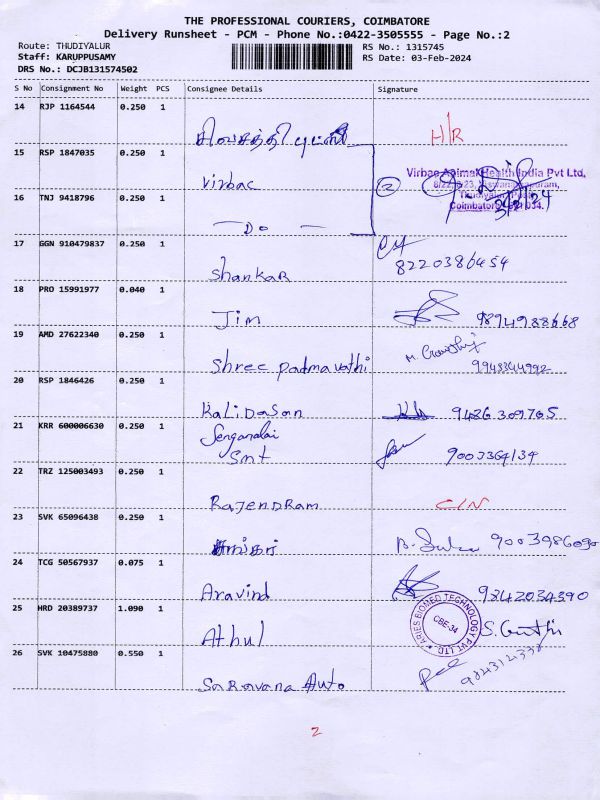 THE PROFESSIONAL COURIERS, COIMBATORE
Delivery Runsheet - PCM - Phone No.:0422-3505555 - Page No.:2
Route: THUDIYALUR RS No.: 1315745
Staff: KARUPPUSAMY RS Date: 03-Feb-2024
DRS No.: DCJB131574502
S No Consignment No Weight PCS Consignee Details Signature
14 RJP 1164544 0.250 1
H/R
15 RSP 1847035 0.250 1
Virbac 2 Virbac Animal Health India Pvt Ltd,
16 TNJ 9418796 0.250 1
Coimbatore
3/2/24
- Do -
17 GGN 910479837 0.250 1
Shankar 8220386454
18 PRO 15991977 0.040 1
Jim 9894988668
19 AMD 27622340 0.250 1
Shree Padmavathi
20 RSP 1846426 0.250 1
Kalidasan 9426309705
21 KRR 600006630 0.250 1
Smt
22 TRZ 125003493 0.250 1
Rajendram C/N
23 SVK 65096438 0.250 1
24 TCG 50567937 0.075 1
Aravind 9842034390
25 HRD 20389737 1.090 1
Athul ARIES BIOMED TECHNOLOGY PVT LTD. CBE-34
26 SVK 10475880 0.550 1
Saravana Auto
2